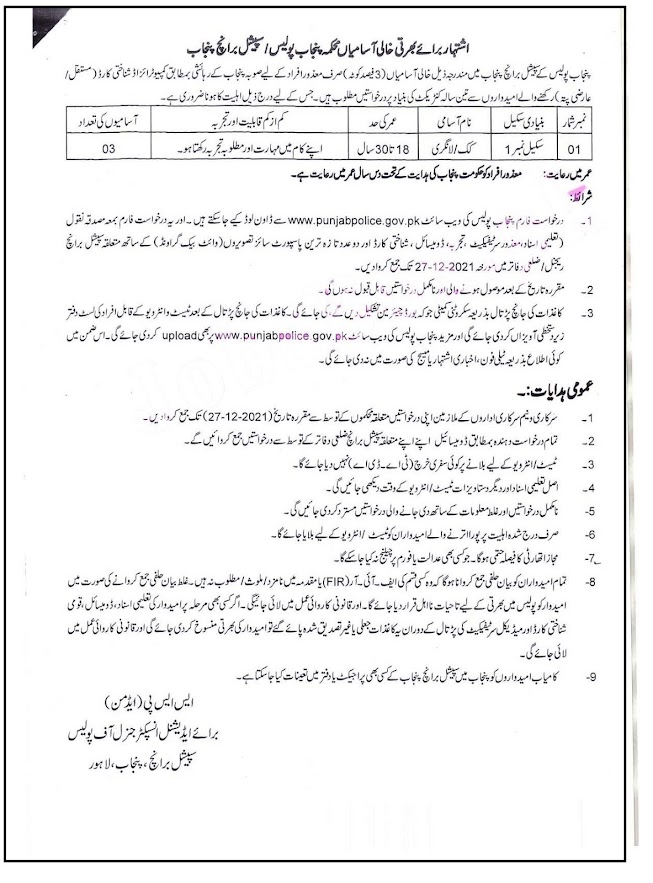 اشتہار برائے بھرتی خالی آسامیاں محکمہ پنجاب پولیس/ سپیشل برانچ پنجاب
پنجاب پولیس کے سپیشل برانچ پنجاب میں مندرجہ ذیل خالی آسامیاں (3 فیصد کوٹہ) صرف معذور افراد کے لیے صوبہ پنجاب کے رہائشی بمطابق کمپیوٹرائزڈ شناختی کارڈ (مستقل/
عارضی پتہ) رکھنے والے امیدواروں سے تین سالہ کنٹریکٹ کی بنیاد پر درخواستیں مطلوب ہیں۔ جس کے لیے درج ذیل اہلیت کا ہونا ضروری ہے۔
نمبر شمار بنیادی سکیل نام آسامی عمر کی حد کم از کم قابلیت اور تجربہ آسامیوں کی تعداد
01 سکیل نمبر 1 کک/لانگری 18 تا 30 سال اپنے کام میں مہارت اور مطلوبہ تجربہ رکھتا ہو۔ 03
عمر میں رعایت: معذور افراد کو حکومت پنجاب کی ہدایت کے تحت دس سال عمر میں رعایت ہے۔
شرائط:
1- درخواست فارم پنجاب پولیس کی ویب سائٹ www.punjabpolice.gov.pk سے ڈاون لوڈ کیے جاسکتے ہیں۔ اور یہ درخواست فارم بمعہ مصدقہ نقول
(تعلیمی اسناد، معذور سرٹیفکیٹ، تجربہ، ڈومیسائل، شناختی کارڈ اور دو عدد تازہ ترین پاسپورٹ سائز تصویروں (وائٹ بیک گراونڈ) کے ساتھ متعلقہ سپیشل برانچ
ریجنل/ضلعی دفاتر میں مورخہ 27-12-2021 تک جمع کروادیں۔
2- مقررہ تاریخ کے بعد موصول ہونے والی اور نامکمل درخواستیں قابل قبول نہ ہوں گی۔
3- کاغذات کی جانچ پڑتال بذریعہ سکروٹنی کمیٹی جو کہ بورڈ چیئرمین تشکیل دیں گے، کی جائے گی۔ کاغذات کی جانچ پڑتال کے بعد ٹیسٹ وانٹرویو کے قابل افراد کی لسٹ دفتر
زیر دستخطی آویزاں کردی جائے گی اور مزید پنجاب پولیس کی ویب سائٹ www.punjabpolice.gov.pk پر بھی upload کردی جائے گی۔ اس ضمن میں
کوئی اطلاع بذریعہ ٹیلی فون، اخباری اشتہار یا میسج کی صورت میں نہ دی جائے گی۔
عمومی ہدایات:۔
1- سرکاری و نیم سرکاری اداروں کے ملازمین اپنی درخواستیں متعلقہ محکموں کے توسط سے مقررہ تاریخ (27-12-2021) تک جمع کروادیں۔
2- تمام درخواست دہندہ بمطابق ڈومیسائیل اپنے اپنے متعلقہ سپیشل برانچ ضلعی دفاتر کے توسط سے درخواستیں جمع کروائیں گے۔
3- ٹیسٹ/انٹرویو کے لیے بلانے پر کوئی سفری خرچ (ٹی۔اے۔ڈی۔اے) نہیں دیا جائے گا۔
4- اصل تعلیمی اسناد اور دیگر دستاویزات ٹیسٹ/انٹرویو کے وقت دیکھی جائیں گی۔
5- نامکمل درخواستیں اور غلط معلومات کے ساتھ دی جانے والی درخواستیں مسترد کردی جائیں گی۔
6- صرف درج شدہ اہلیت پر پورا اترنے والے امیدواران کو ٹیسٹ /انٹرویو کے لیے بلایا جائے گا۔
7- مجاز اتھارٹی کا فیصلہ حتمی ہوگا۔ جو کسی بھی عدالت یا فورم پر چیلنج نہ کیا جاسکے گا۔
8- تمام امیدواران کو بیان حلفی جمع کروانا ہوگا کہ وہ کسی قسم کی ایف۔آئی۔آر (FIR) یا مقدمہ میں نامزد/ملوث/مطلوب نہ ہیں۔ غلط بیان حلفی جمع کروانے کی صورت میں
امیدوار کو پولیس میں بھرتی کے لیے تاحیات نا اہل قرار دیا جائے گا۔ اور قانونی کاروائی عمل میں لائی جائیگی۔ اگر کسی بھی مرحلہ پر امیدوار کی تعلیمی اسناد، ڈومیسائل، قومی
شناختی کارڈ اور میڈیکل سرٹیفکیٹ کی پڑتال کے دوران یہ کاغذات جعلی یا غیر تصدیق شدہ پائے گئے تو امیدوار کی بھرتی منسوخ کردی جائے گی اور قانونی کاروائی عمل میں
لائی جائے گی۔
9- کامیاب امیدواروں کو پنجاب میں سپیشل برانچ پنجاب کے کسی بھی پراجیکٹ یا دفتر میں تعینات کیا جاسکتا ہے۔
ایس ایس پی (ایڈمن)
برائے ایڈیشنل انسپکٹر جنرل آف پولیس
سپیشل برانچ، پنجاب، لاہور